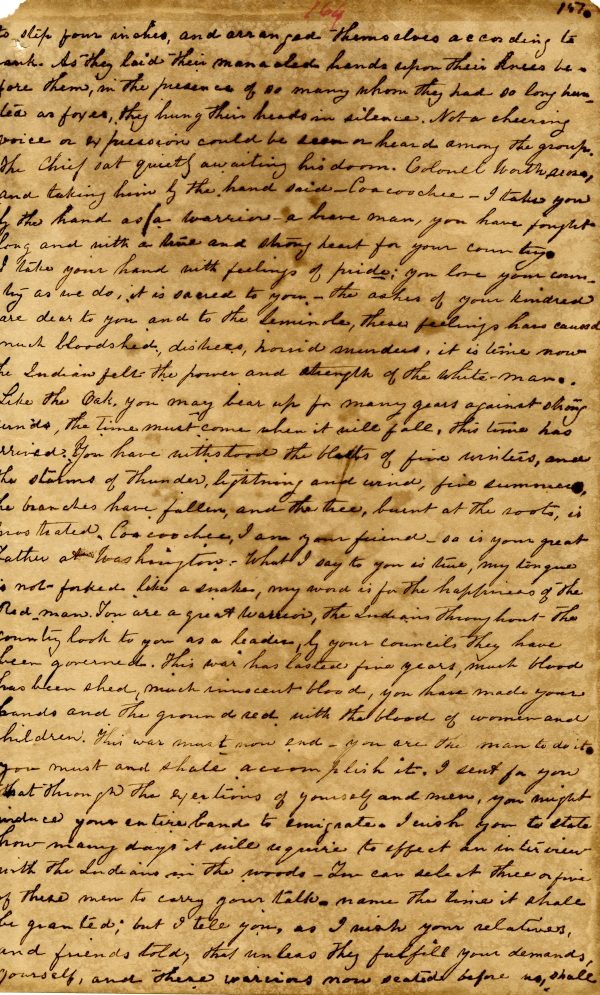 164
157.
to step four inches, and arranged themselves according to
rank. As they laid their manacled hands upon their knees be-
fore them, in the presence of so many whom they had so long hun-
ted as foxes, they hung their heads in silence. Not a cheering
voice or expression could be seen or heard among the group.
The Chief sat quietly awaiting his doom. Colonel Worth rose,
and taking him by the hand said - Coacoochee - I take you
by the hand as a warrior - a brave man, you have fought
long and with a true and strong heart for your country.
I take your hand with feelings of pride; you love your coun-
try as we do, it is sacred to you - the ashes of your kindred
are dear to you and to the Seminole, these feelings have caused
much bloodshed, distress, horrid murders, it is time now
he Indian felt the power and strength of the white-man.
Like the Oak, you may bear up for many years against strong
winds, the time must come when it will fall, this time has
rrived. You have withstood the blasts of five winters, and
the storms of thunder, lightning and wind, five summers,
he branches have fallen, and the tree, burnt at the roots, is
prostrated. Coacoochee, I am your friend - so is your great
Father at Washington. What I say to you is true, my tongue
is not forked like a snake, my word is for the happiness of the
Red-man. You are a great Warrior, the Indians throughout the
country look to you as a leader, by your councils they have
been governed. This war has lasted five years, much blood
has been shed, much innocent blood, you have made your
hands and the ground red with the blood of women and
children. This war must now end - you are the man to do it.
you must and shall accomplish it. I sent for you
that through the exertions of yourself and men, you might
induce your entire band to emigrate. I wish you to state
how many days it will require to effect an interview
with the Indians in the woods - You can select three or five
of these men to carry your talk. name the time it shall
be granted; but I tell you, as I wish your relatives,
and friends told, that unless they fulfill your demands,
yourself, and these warriors now seated before us, shall